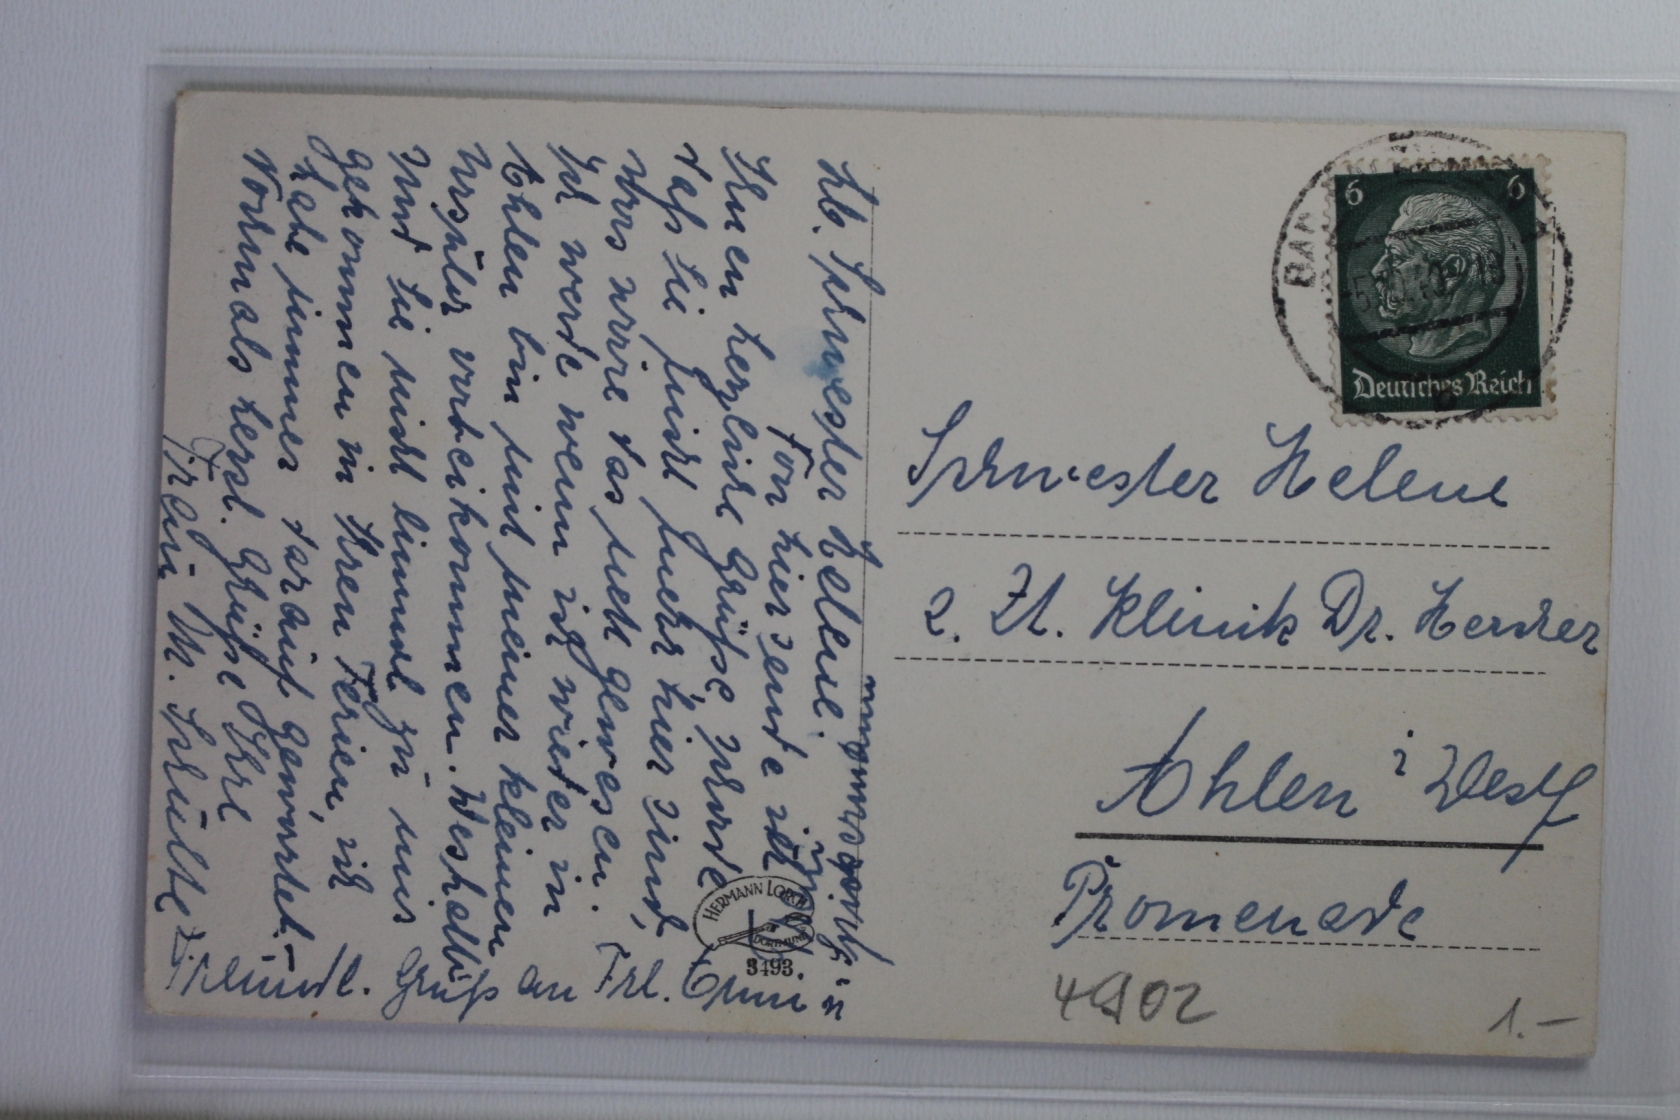 Lb. Schwester Helene!
Von hier sende ich
Ihnen herzliche Grüße
daß Sie nicht mehr hier sind,
das nette gewesen.
Ich werde wenn ich wieder in
Ahlen bin mit meiner kleinen
Ursula vorbeikommen. Weshalb
sind Sie nicht einmal zu uns
gekommen in Ihren Ferien, ich
habe immer darauf gewartet.
Nochmals herzl. Grüße Ihre
Frau M. Schulte
Freundl. Gruß an Frl. Änni u.
HERMANN LORCH
DORTMUND
3493.
6 6
Deutsches Reich
BAD
Schwester Helene
z. Zt. Klinik Dr.
Ahlen i Westf
Promenade
4902
1.–